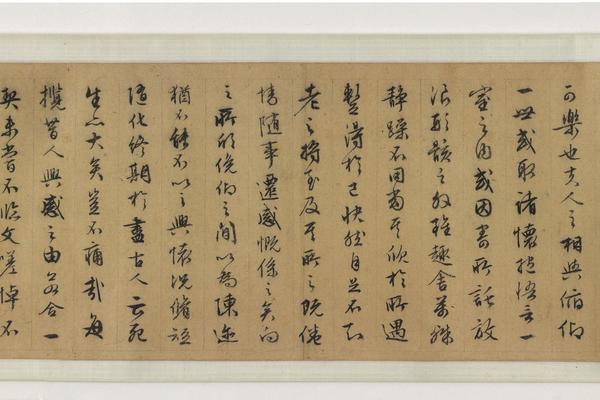 可樂也夫人之相與俯仰
一世或取諸懷抱悟言一
室之內或因寄所託放
浪形骸之外雖趣舍萬殊
靜躁不同當其欣於所遇
暫得於己快然自足不知
老之將至及其所之既倦
情隨事遷感慨係之矣向
之所欣俛仰之間以為陳迹
猶不能不以之興懷況脩短
隨化終期於盡古人云死
生亦大矣豈不痛哉每
攬昔人興感之由若合一
契未嘗不臨文嗟悼不